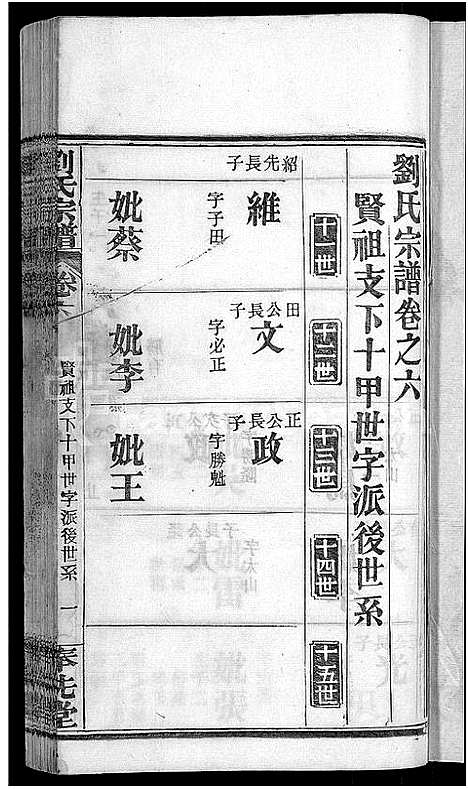 劉氏宗譜卷之六
賢祖支下十甲世字派後世系
十一世
十二世
十三世
十四世
十五世
紹先長子
維
字子田
妣蔡
田公長子
文
字必正
妣李
正公長子
政
字勝魁
妣王
劉氏宗譜
卷六
賢祖支下十甲世字派後世系
一
奉先堂